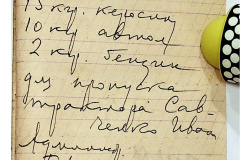 15 кгр. керосин
10 кгр автол
2 кгр. бензин
для пропуска
трактора Сав-
ченко Иван